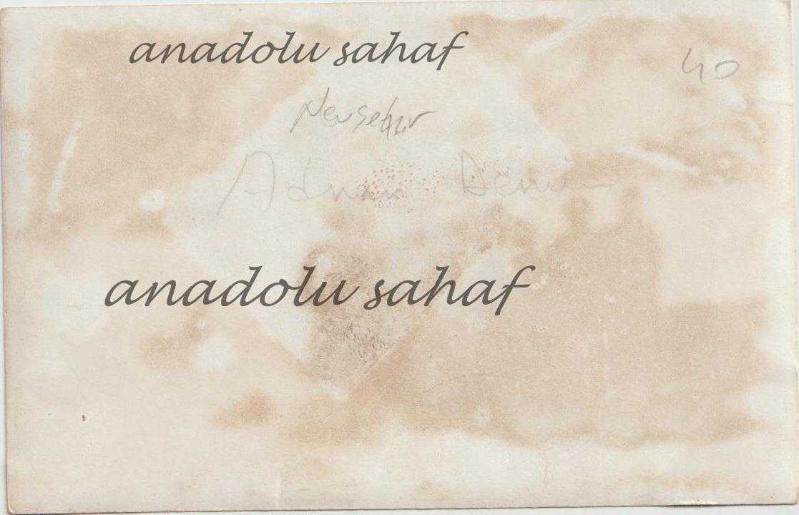 anadolu sahaf
40
Nevşehir
Adnan
anadolu sahaf